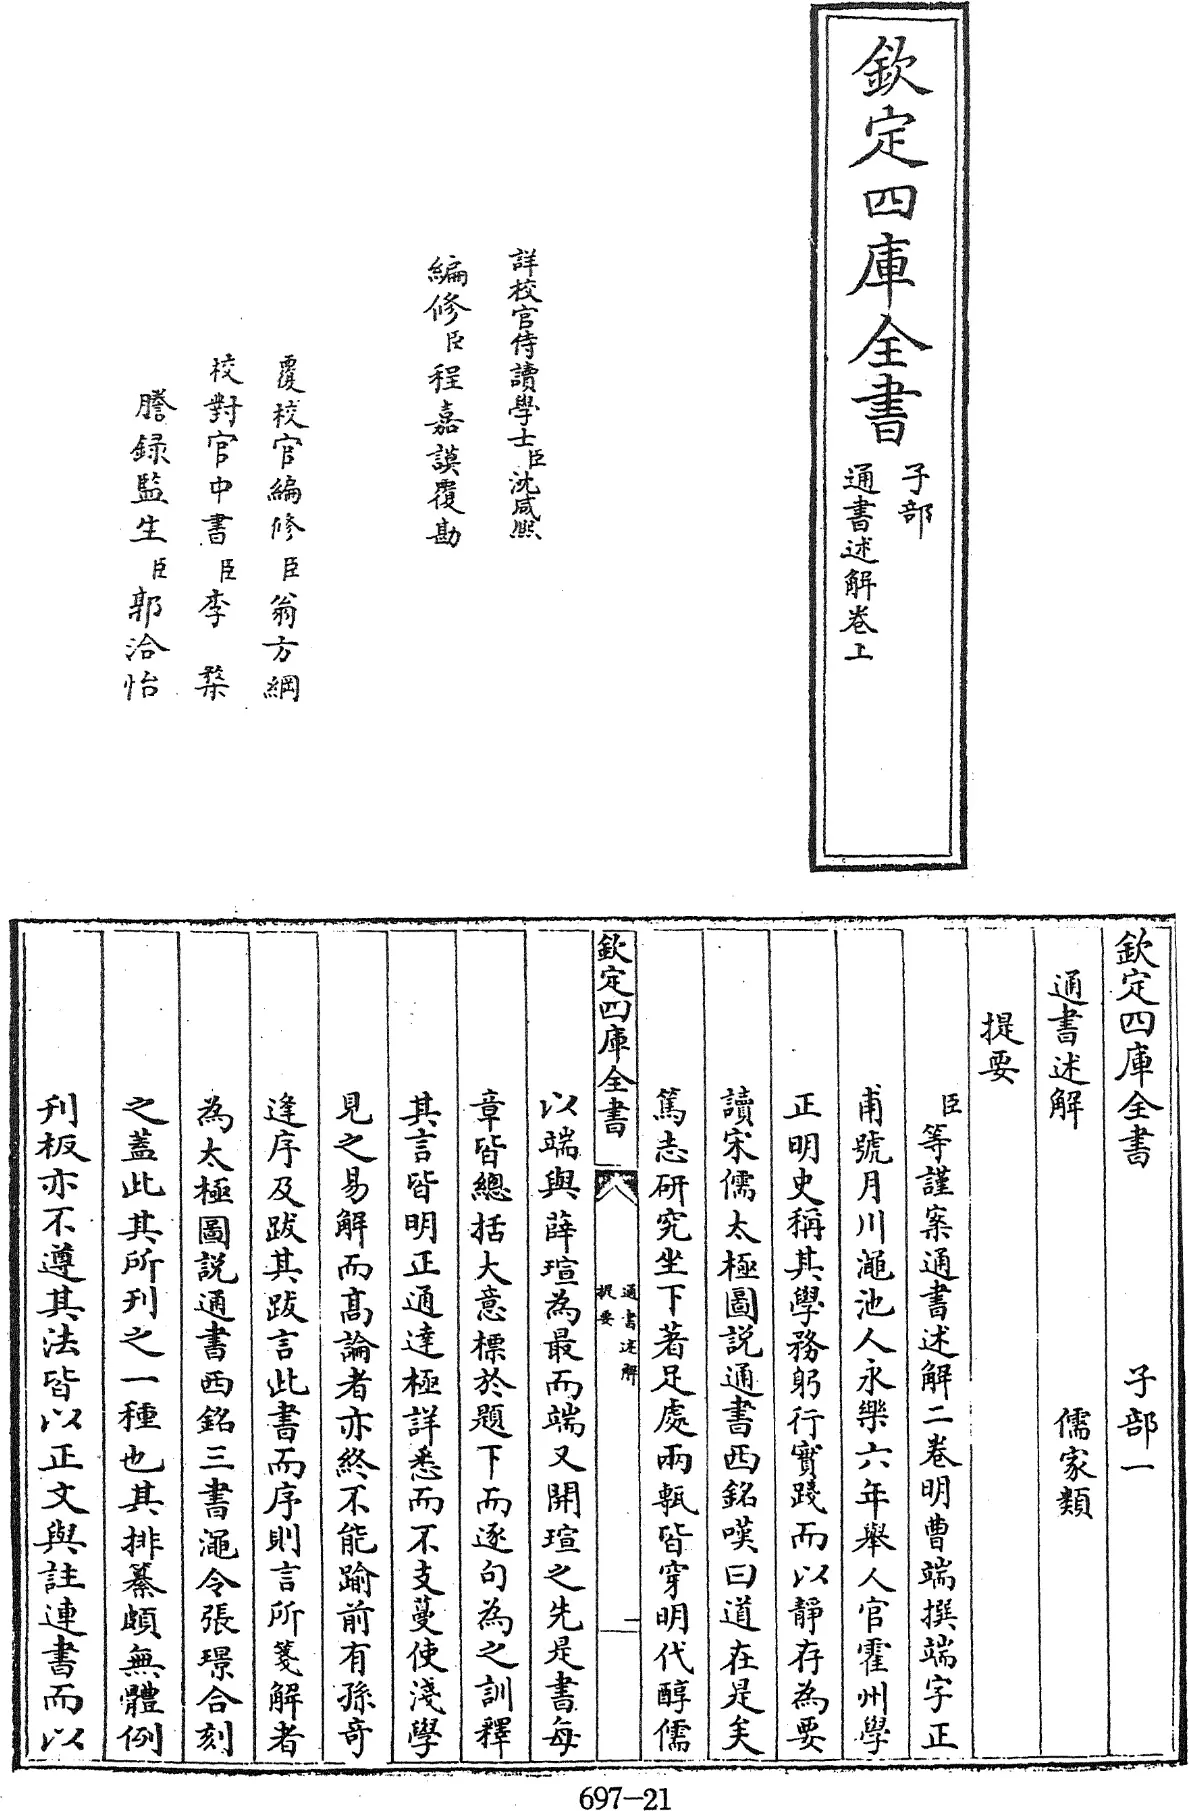 欽定四庫全書
子部
通書述解卷上
詳校官侍讀學士臣沈咸熙
編修臣程嘉謨覆勘
覆校官編修臣翁方綱
校對官中書臣李榃
謄録監生臣郭洽怡
欽定四庫全書 子部一
通書述解 儒家類
提要
臣等謹案通書述解二卷明曹端撰端字正
甫號月川澠池人永樂六年舉人官霍州學
正明史稱其學務躬行實踐而以靜存為要
讀宋儒太極圖説通書西銘嘆曰道在是矣
篤志研究坐下著足處兩甎皆穿明代醇儒
欽定四庫全書
通書述解
提要
一
以端與薛瑄為最而端又開瑄之先是書每
章皆總括大意標於題下而逐句為之訓釋
其言皆明正通達極詳悉而不支蔓使淺學
見之易解而髙論者亦終不能踰前有孫奇
逢序及跋其跋言此書而序則言所箋解者
為太極圖説通書西銘三書澠令張璟合刻
之蓋此其所刊之一種也其排纂頗無體例
刊板亦不遵其法皆以正文與註連書而以
697-21